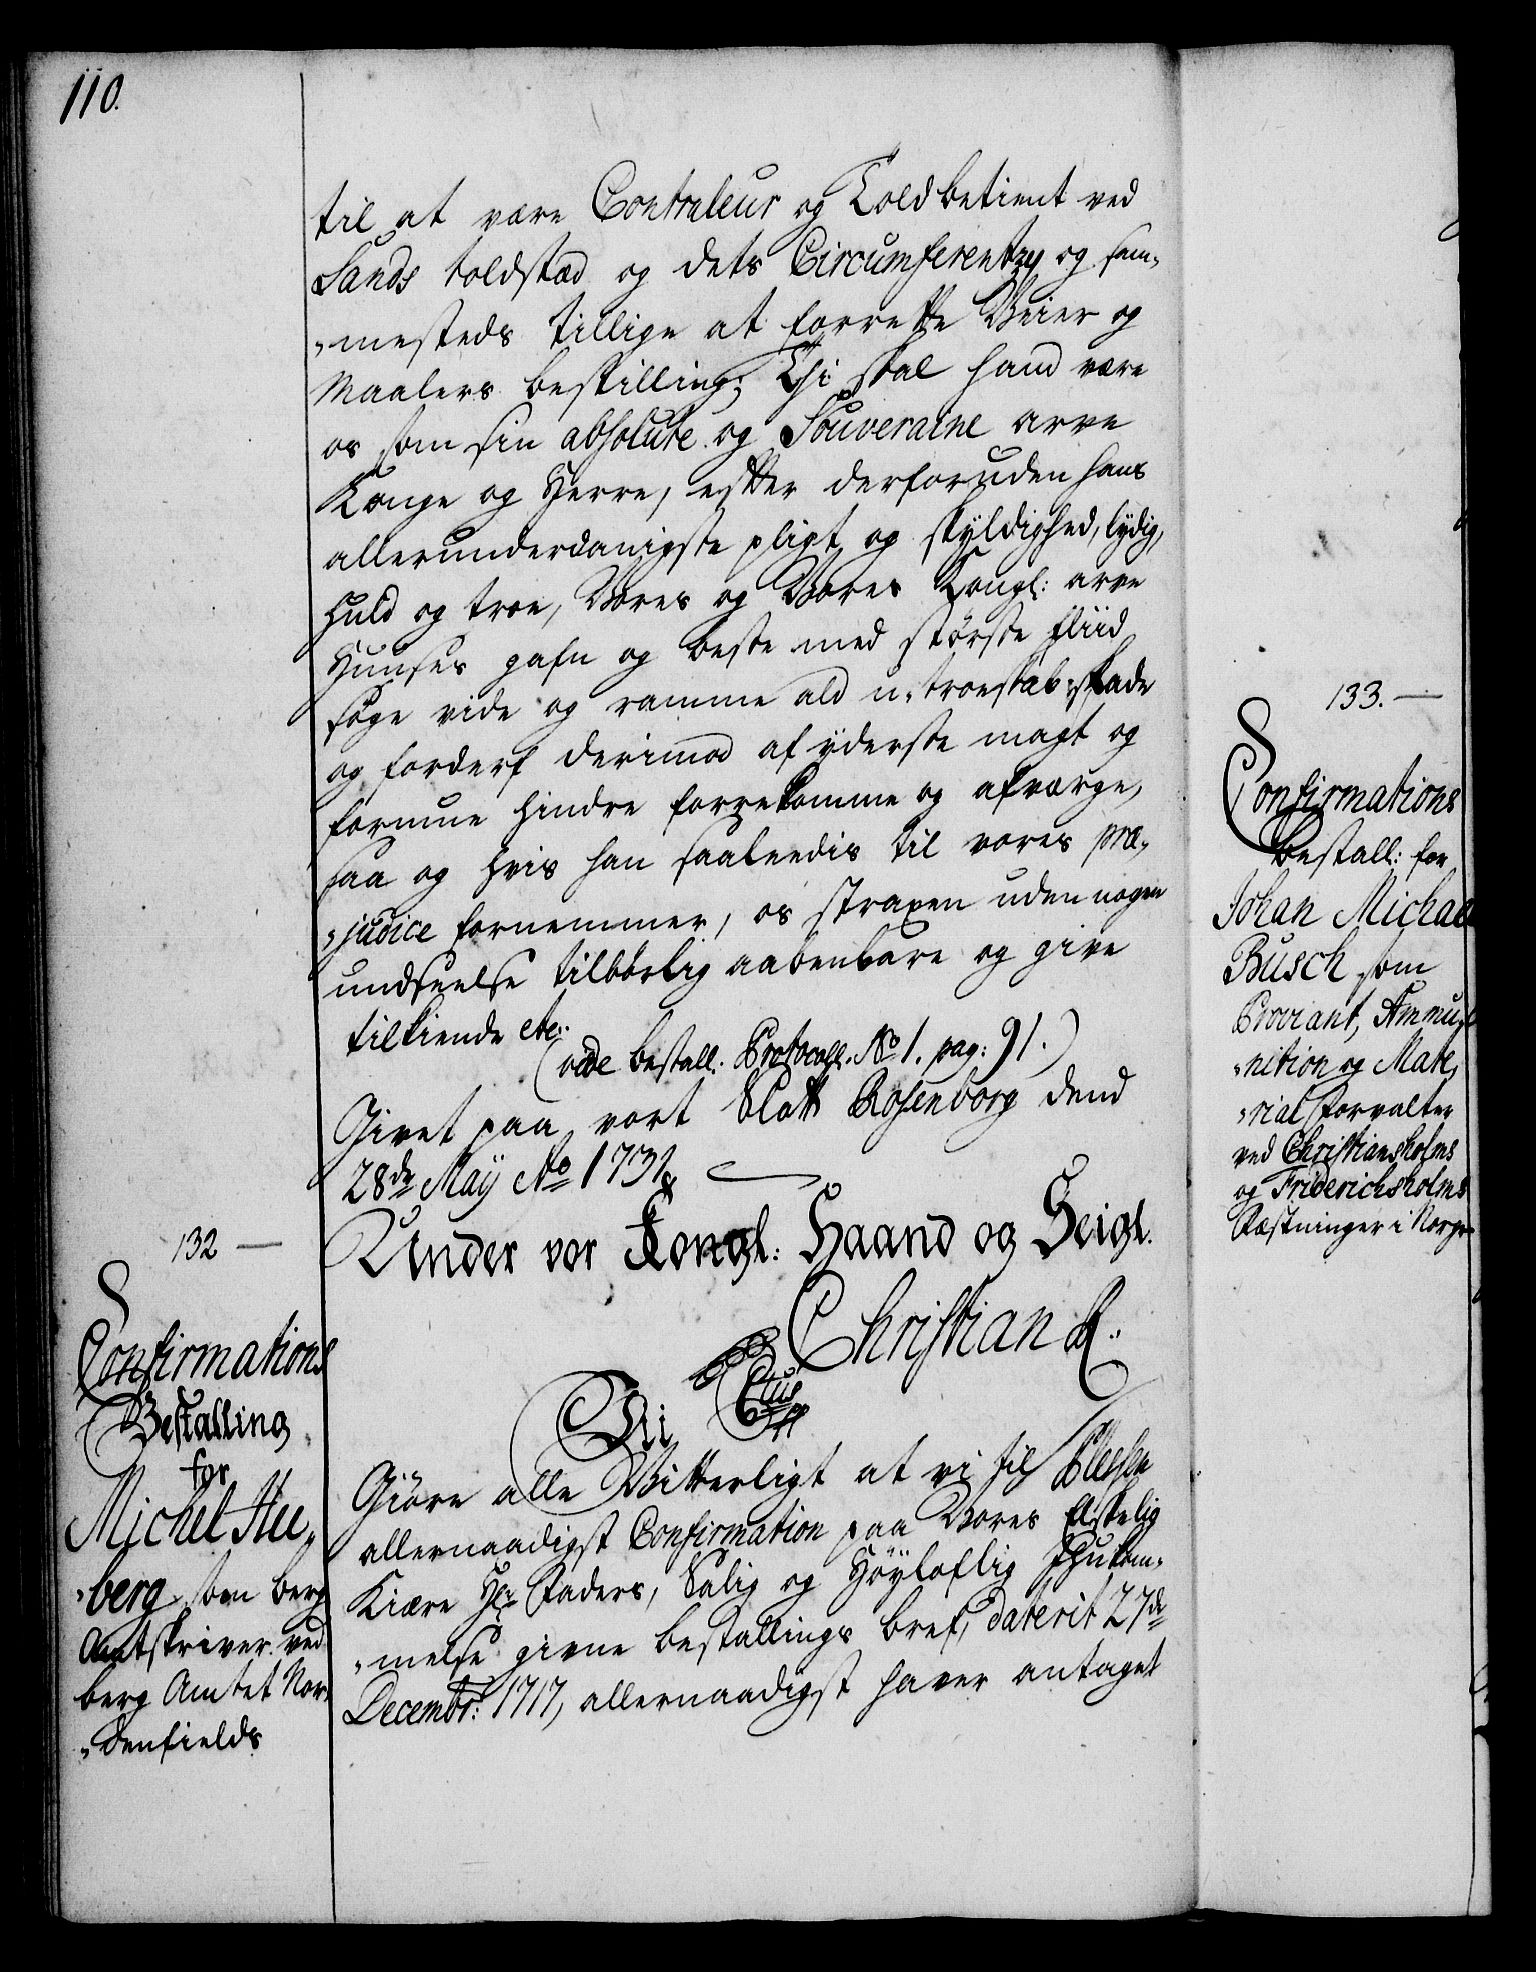 110.
til at være Contraleur og Toldbetient ved
Sands toldsted og dets Circumferentzer og sam„
„mesteds tillige at forrette Veier og
Maalers bestilling; Thi skal hand være
os som sin absolute og Souveraine arve
Konge og Herre, efter derforuden hans
allerunderdanigste pligt og skyldighed, lydig,
huld og troe, Vores og Vores Kongl: arve
Huuses gafn og beste med største fliid
søge vide og ramme ald u-troeskab skade
og forderf derimod af yderste magt og
formue hindre forrekomme og afværge,
saa og hvis han saaleedis til vores præ„
„judice fornemmer, os straxen uden nogen
undseelse tilbørlig aabenbare og give
tilkiende etc:
(vide bestall. Protocoll. No 1. pag: 91.)
Givet paa vort Slott Rosenborg dend
28de Maÿ Ao 1731
Under vor Kongl: Haand og Seigl.
Christian R.
132 —
Confirmations
Bestalling
for
Michel Hee„
„berg som berg
Amtskriver ved
berg Amtet Nor„
„denfields
Vii Ctus
Giøre alle Vitterligt at vi til
allernaadigst Confirmation paa Vores Elskelig
Kiære Hr Faders, Salig og Høyloflig Ihukom„
„melse givne bestallings bref, daterit 27de
Decembr: 1717, allernaadigst haver antaget
133. —
Confirmations
bestall: for
Johan Michael
Busch som
Proviant, Ammu„
„nition og Mate„
„rial Forvalter
ved Christiansholms
og Friderichsholms
Fæstninger i Norge